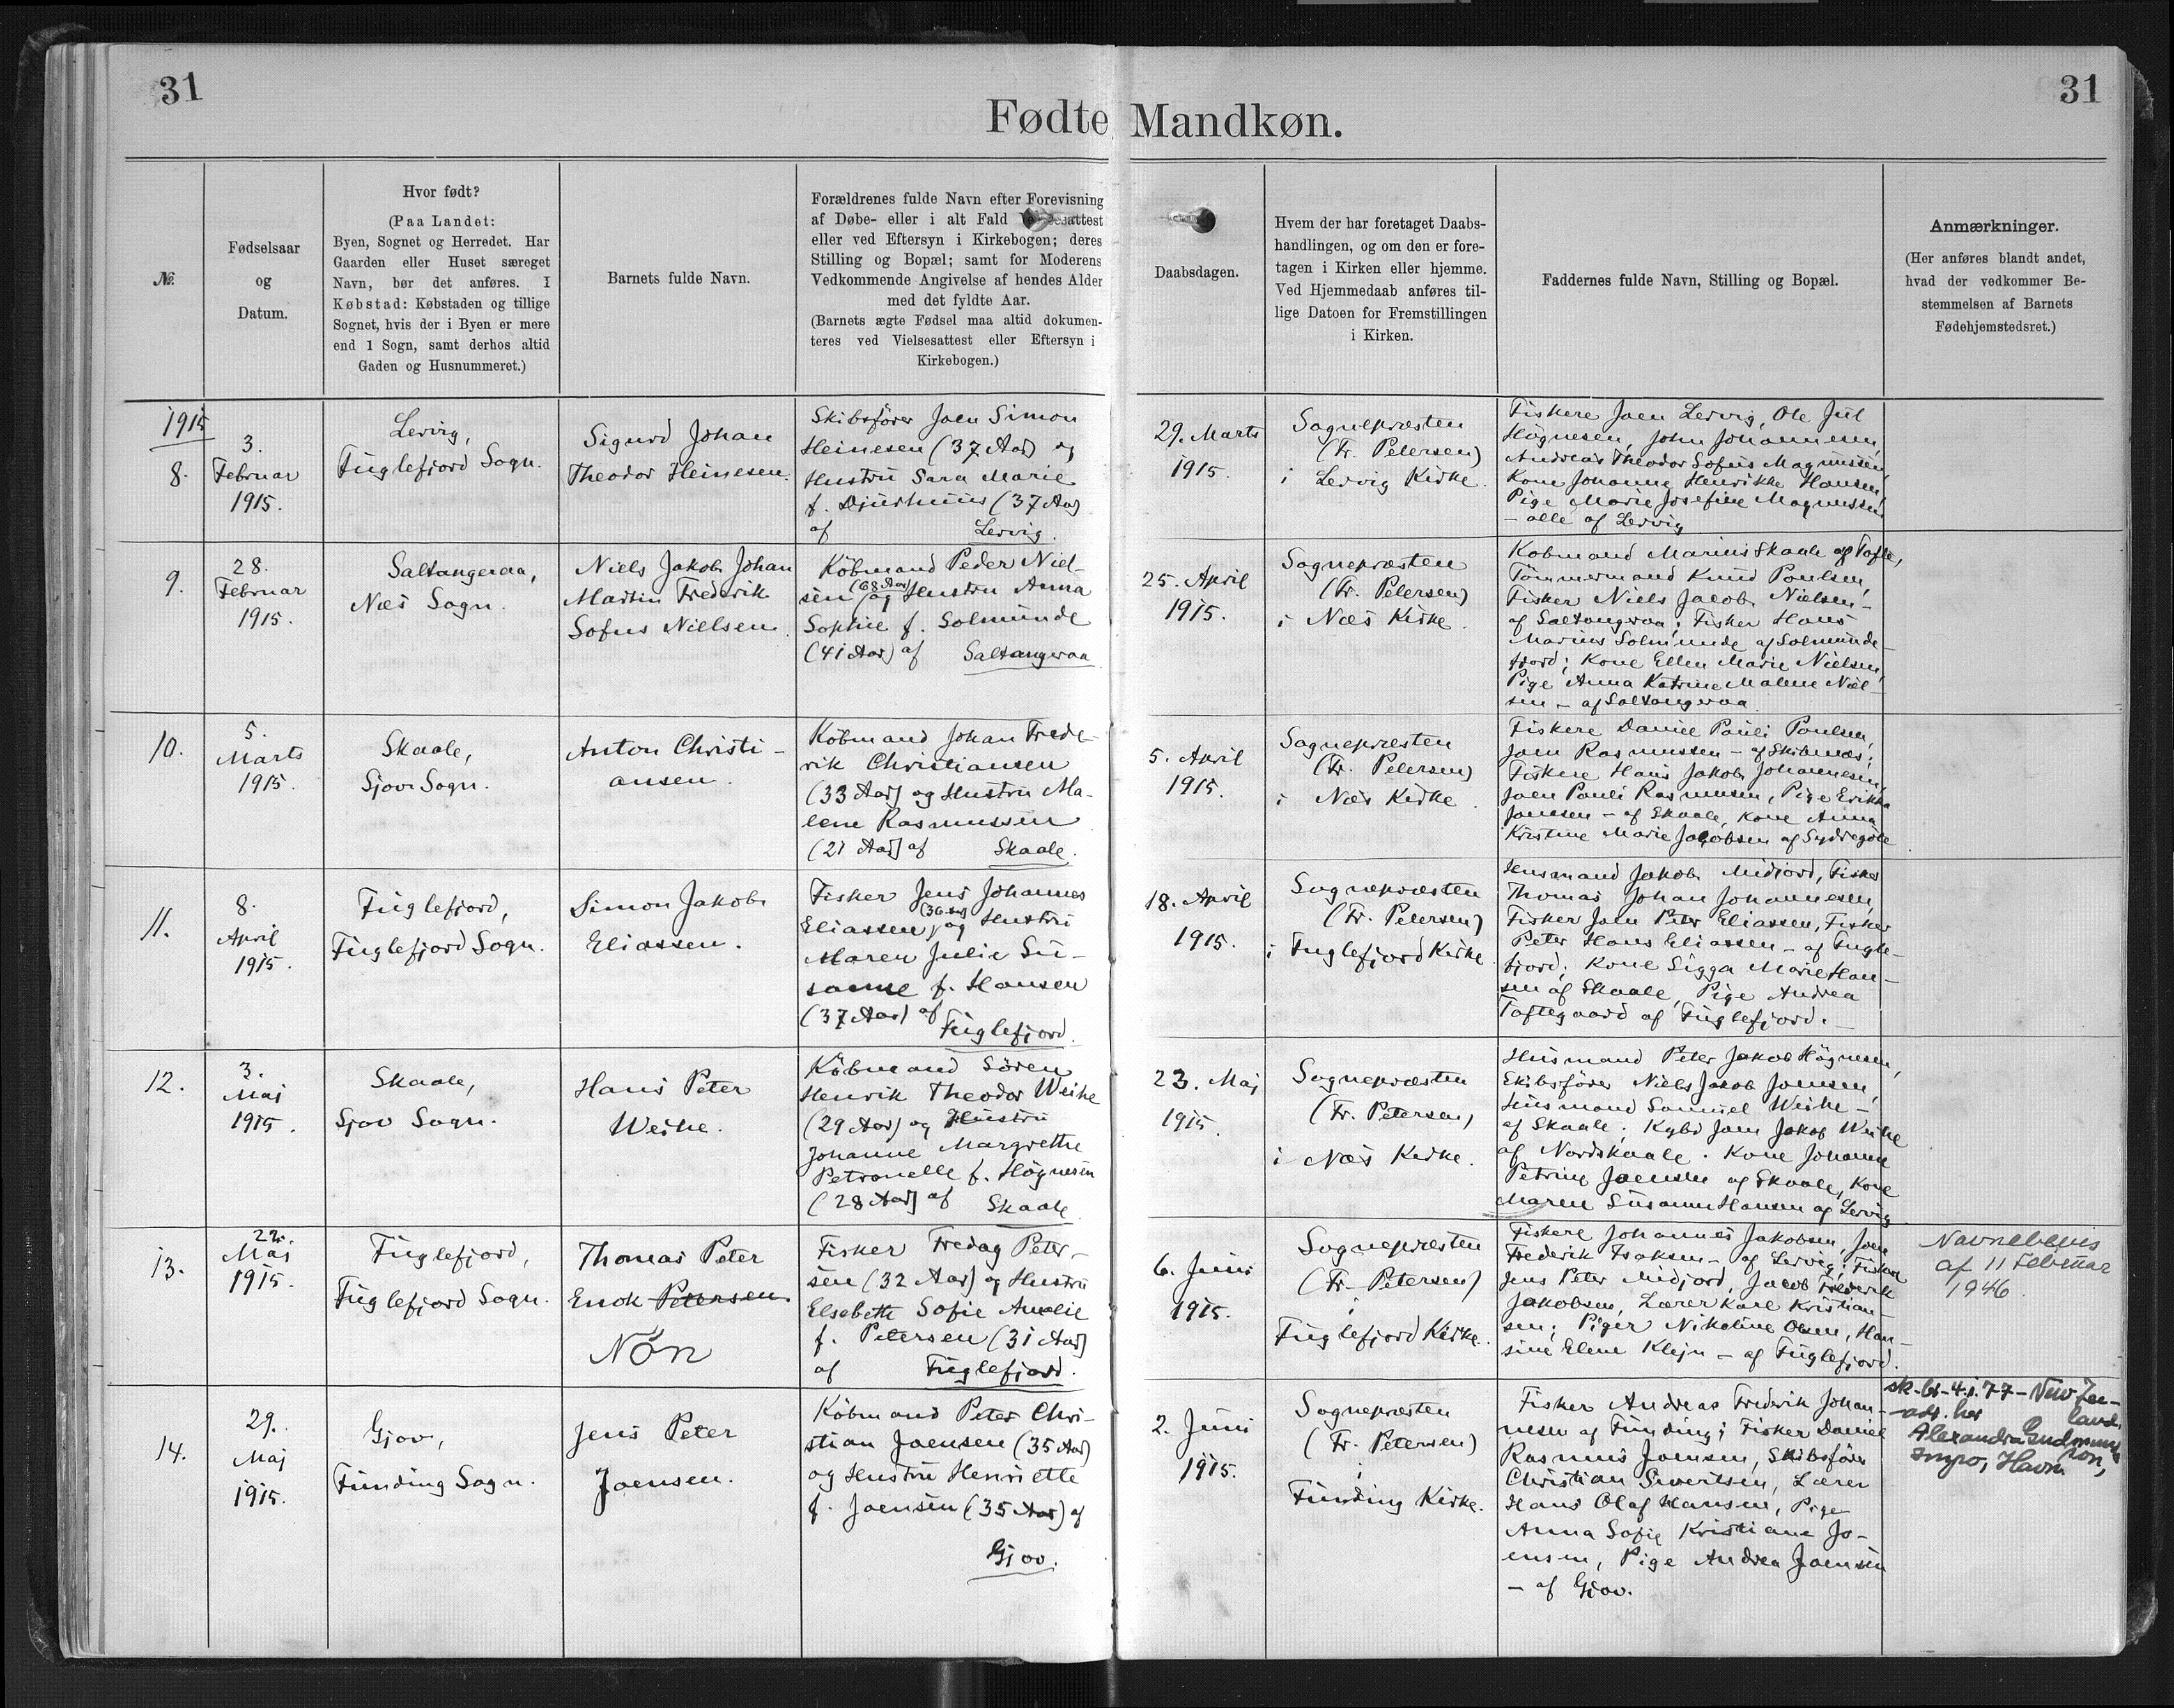 31
31
Fødte Mandkøn.
№.
Fødselsaar
og
Datum.
Hvor født?
(Paa Landet:
Byen, Sognet og Herredet. Har
Gaarden eller Huset særeget
Navn, bør det anføres. I
Købstad: Købstaden og tillige
Sognet, hvis der i Byen er mere
end 1 Sogn, samt derhos altid
Gaden og Husnummeret.)
Barnets fulde Navn.
Forældrenes fulde Navn efter Forevisning
af Døbe- eller i alt Fald
eller ved Eftersyn i Kirkebogen; deres
Stilling og Bopæl; samt for Moderens
Vedkommende Angivelse af hendes Alder
med det fyldte Aar.
(Barnets ægte Fødsel maa altid dokumen-
teres ved Vielsesattest eller Eftersyn i
Kirkebogen.)
Daabsdagen.
Hvem der har foretaget Daabs-
handlingen, og om den er fore-
tagen i Kirken eller hjemme.
Ved Hjemmedaab anføres til-
lige Datoen for Fremstillingen
i Kirken.
Faddernes fulde Navn, Stilling og Bopæl.
Anmærkninger.
(Her anføres blandt andet,
hvad der vedkommer Be-
stemmelsen af Barnets
Fødehjemstedsret.)
1915
8.
3.
Februar
1915.
Lervig,
Fuglefjord Sogn.
Sigurd Johan
Theodor Heinesen.
Skibsfører Joen Simon
Heinesen (37 Aar) og
Hustru Sara Marie
f. Djurhuus (37 Aar)
af Lervig.
29. Marts
1915.
Sognepræsten
(Fr. Petersen)
i Lervig Kirke.
Fiskere Joen Lervig, Ole Jul
Högnesen, John Johannesen,
Andreas Theodor Sofus Magnussen,
Kone Johanne Henrikke Hansen,
Pige Marie Josefine Magnussen
- alle af Lervig
9.
28.
Februar
1915.
Saltangeraa,
Næs Sogn.
Niels Jakob Johan
Martin Frederik
Sofus Nielsen.
Købmand Peder Niel-
sen (68 Aar) og Hustru Anna
Sophie f. Solmunde
(41 Aar) af Saltangeraa
25. April
1915.
Sognepræsten
(Fr. Petersen)
i Næs Kirke.
Købmand Marius Skaale af Tofte,
Tömmermand Knud Poulsen,
Fisker Niels Jacob Nielsen -
af Saltangeraa; Fisker Hans
Marius Solmunde af Solmunde-
fjord; Kone Ellen Marie Nielsen,
Pige Anna Katrine Malene Niel-
sen - af Saltangeraa.
10.
5.
Marts
1915.
Skaale,
Gjov Sogn.
Anton Christi-
ansen.
Købmand Johan Frede-
rik Christiansen
(33 Aar) og Hustru Ma-
lene Rasmussen
(21 Aar) af Skaale.
5. April
1915.
Sognepræsten
(Fr. Petersen)
i Næs Kirke.
Fiskere Daniel Pauli Poulsen,
Joen Rasmussen - af Skibnæs;
Fiskere Hans Jakob Johannesen,
Joen Pauli Rasmussen, Pige Erikka
Joensen - af Skaale, Kone Anna
Kristine Marie Jacobsen af Sydregöte
11.
8.
April
1915.
Fuglefjord,
Fuglefjord Sogn.
Simon Jakob
Eliassen.
Fisker Jens Johannes
Eliassen (36 Aar) og Hustru
Maren Julie Su-
sanne f. Hansen
(37 Aar) af
Fuglefjord.
18. April
1915.
Sognepræsten
(Fr. Petersen)
i Fuglefjord Kirke
Husmand Jakob Midjord, Fisker
Thomas Johan Johannesen,
Fisker Joen Peter Eliassen, Fisker
Peter Hans Eliassen - af Fugle-
fjord; Kone Sigga Marie Han-
sen af Skaale, Pige Andrea
Toftegaard af Fuglefjord.-
12.
3.
Maj
1915.
Skaale,
Gjov Sogn.
Hans Peter
Weihe.
Købmand Sören
Henrik Theodor Weihe
(29 Aar) og Hustru
Johanne Margrethe
Petronelle f. Högnesen
(28 Aar) af Skaale
23. Maj
1915.
Sognepræsten
(Fr. Petersen)
i Næs Kirke.
Husmand Peter Jakob Högnesen,
Skibsfører Niels Jacob Joensen,
Husmand Samuel Weihe -
af Skaale; Kgbd Joen Jakob Weihe
af Nordskaale. Kone Johanne
Petrine Joensen af Skaale, Kone
Maren Susanne Hansen af Lervig
13.
22.
Maj
1915.
Fuglefjord,
Fuglefjord Sogn.
Thomas Peter
Enok Petersen
Nón
Fisker Fredag Peter-
sen (32 Aar) og Hustru
Elsebeth Sofie Amalie
f. Petersen (31 Aar)
af Fuglefjord.
6. Juni
1915.
Sognepræsten
(Fr. Petersen)
i
Fuglefjord Kirke.
Fiskere Johannes Jakobsen, Joen
Frederik Isaksen - af Lervig; Fiskere
Jens Peter Midjord, Jacob Frederik
Jakobsen, Lærer Karl Kristian-
sen; Piger Nikoline Olsen, Han-
sine Elene Klejn - af Fuglefjord.
Navnebevis
af 11 Februar
1946.
14.
29.
Maj
1915.
Gjov,
Funding Sogn.
Jens Peter
Joensen.
Købmand Peter Chri-
stian Joensen (35 Aar)
og Hustru Henriette
f. Joensen (35 Aar) af
Gjov.
2. Juni
1915.
Sognepræsten
(Fr. Petersen)
i
Funding Kirke.
Fisker Andreas Frederik Johan-
nesen af Funding; Fisker Daniel
Rasmus Joensen, Skibsfører
Christian Sivertsen, Lærer
Hans Olaf Hansen, Pige
Anna Sofie Kristiane Jo-
ensen, Pige Andrea Joensen
- af Gjov.
4.1.77 - New Zea-
land.
Alexandra
Havn.